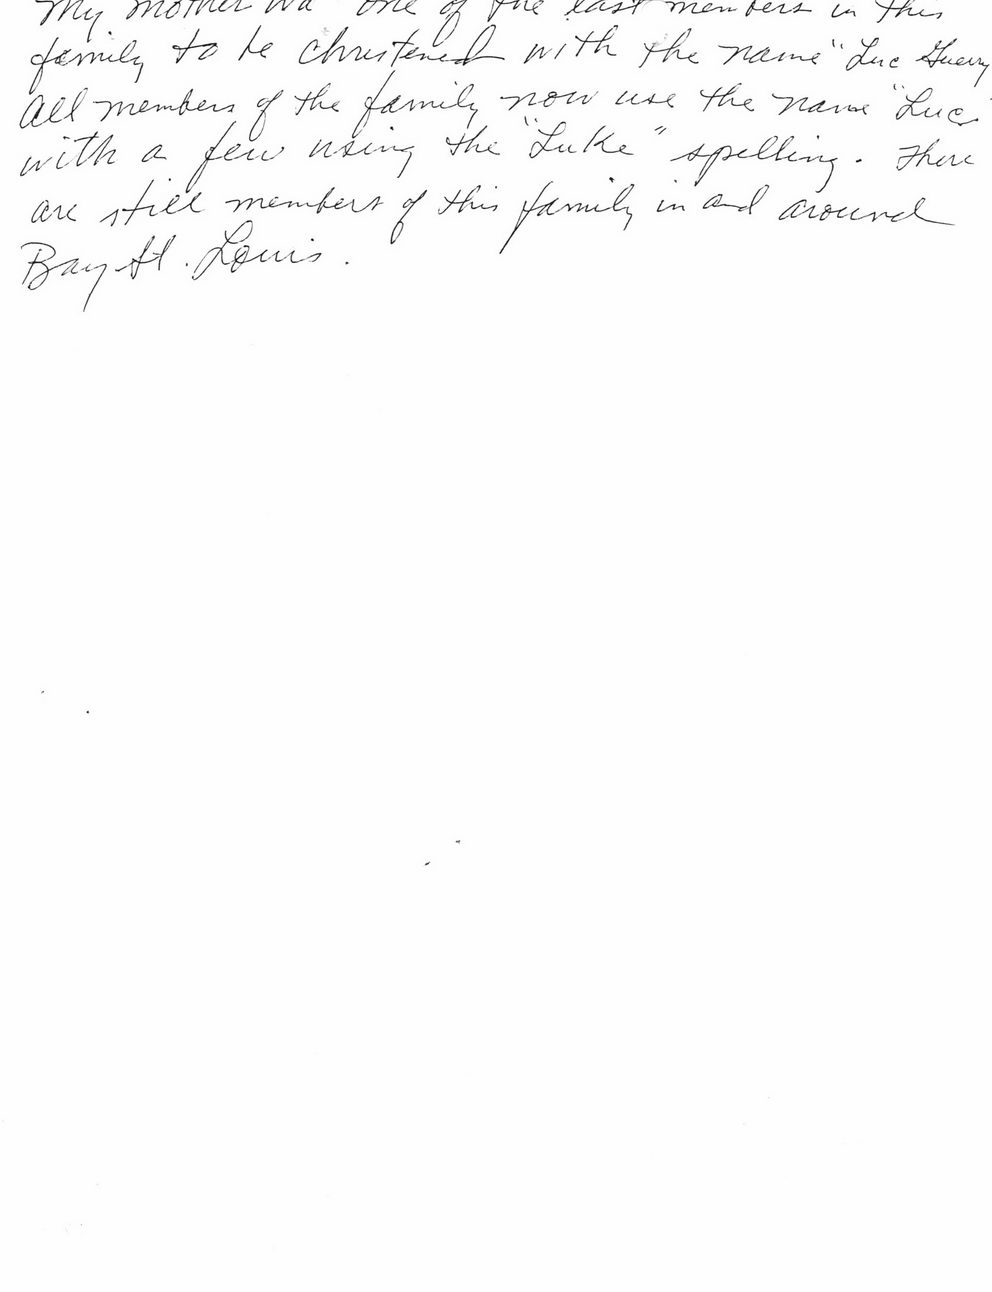 My mother wa one of the last members in this
family to be christened with the name "Luc Guerry
All members of the family now use the name "Luc"
with a few using the "Luke" spelling. There
are still members of this family in and around
Bay St. Louis.